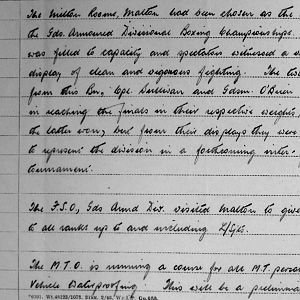 The Milton Rooms, Malton had been chosen as the
the Gds. Armoured Divisional Boxing Championships.
was filled to capacity and spectators witnessed a
display of clean and vigorous fighting. The two
from this Bn, Cpl. Sullivan and Gdsm. O'Brien
in reaching the finals in their respective weights
the latter won, but from their displays they were
to represent the division in a forthcoming inter-
tournament.
The F.S.O, Gds Armd Div. visited Malton to give
to all ranks up to and including L/Sgts.
The M.T.O. is running a course for all M.T. person
Vehicle Waterproofing. This will be a prelimina